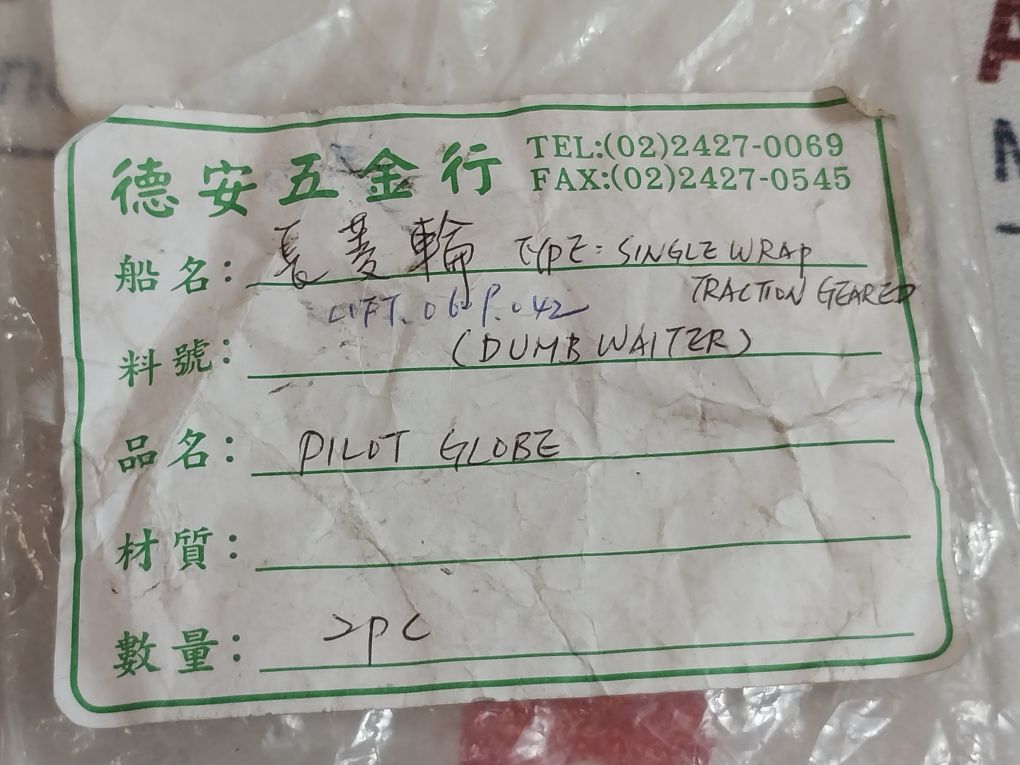 德安五金行
TEL:(02)2427-0069
FAX:(02)2427-0545
船名: 長菱輪 TYPE: SINGLE WRAP
TRACTION GEARED
LIFT. 06-P.042
料號: (DUMB WAITER)
品名: PILOT GLOBE
材質:
數量: 2pc